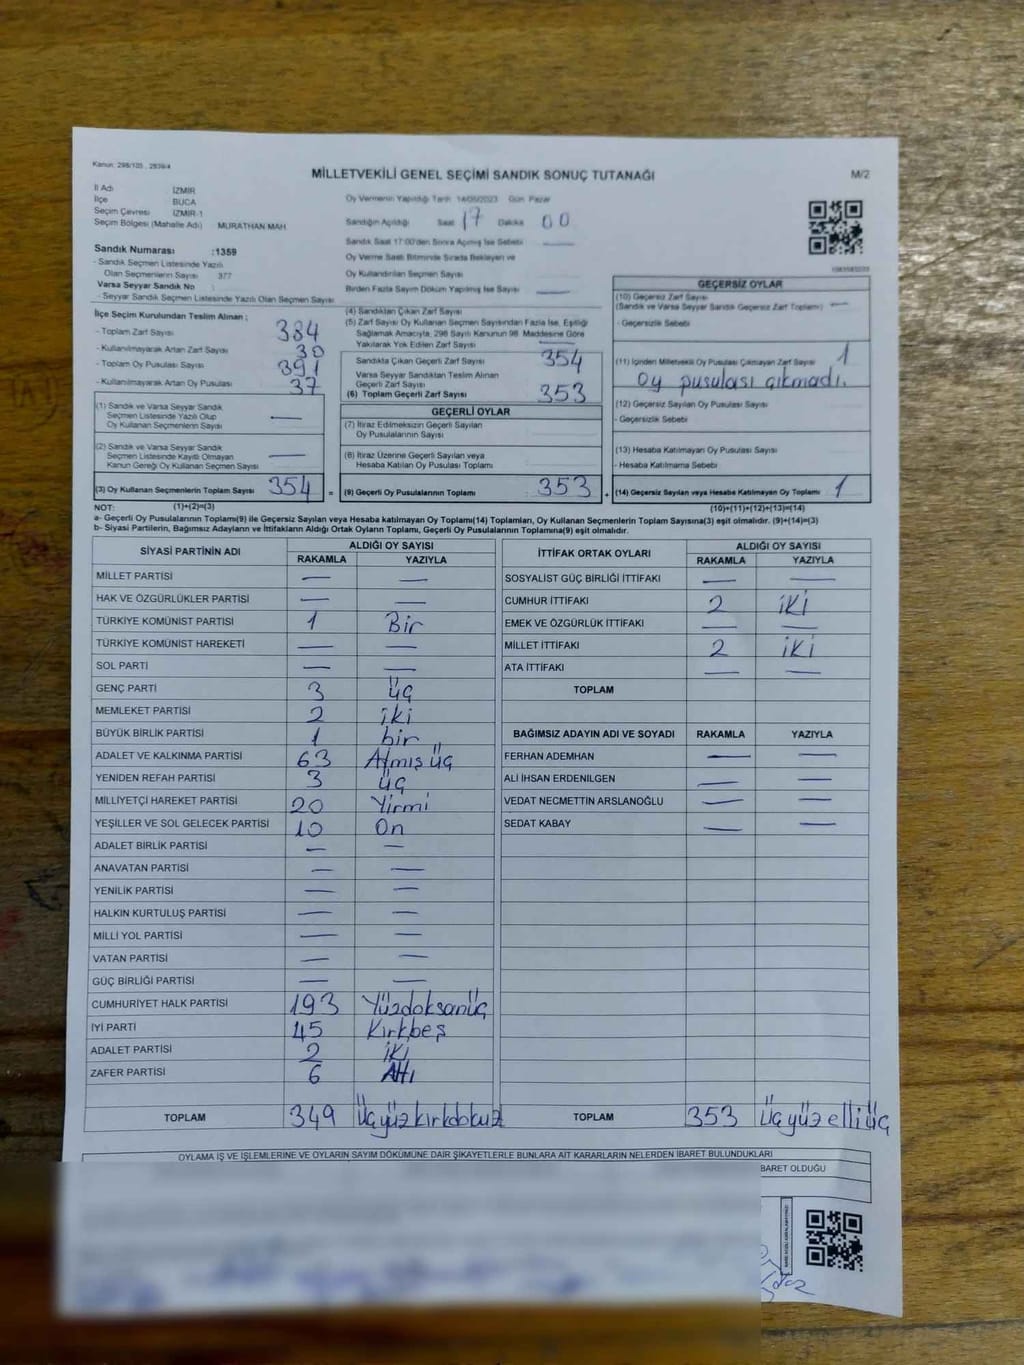 Kanun: 298/105 , 2839/4
MİLLETVEKİLİ GENEL SEÇİMİ SANDIK SONUÇ TUTANAĞI
M/2
İl Adı İZMİR
İlçe BUCA
Seçim Çevresi İZMİR-1
Seçim Bölgesi (Mahalle Adı) MURATHAN MAH
Sandık Numarası :1359
- Sandık Seçmen Listesinde Yazılı
Olan Seçmenlerin Sayısı 377
Varsa Seyyar Sandık No
- Seyyar Sandık Seçmen Listesinde Yazılı Olan Seçmen Sayısı
Oy Vermenin Yapıldığı Tarih 14/05/2023 Gün Pazar
Sandığın Açıldığı Saat 17 Dakika 00
Sandık Saat 17:00'den Sonra Açılmış İse Sebebi —
Oy Verme Saati Bitiminde Sırada Bekleyen ve
Oy Kullandırılan Seçmen Sayısı
Birden Fazla Sayım Döküm Yapılmış İse Sayısı —
İlçe Seçim Kurulundan Teslim Alınan ;
- Toplam Zarf Sayısı 384
- Kullanılmayarak Artan Zarf Sayısı 30
- Toplam Oy Pusulası Sayısı 391
- Kullanılmayarak Artan Oy Pusulası 37
(1) Sandık ve Varsa Seyyar Sandık
Seçmen Listesinde Yazılı Olup
Oy Kullanan Seçmenlerin Sayısı —
(2) Sandık ve Varsa Seyyar Sandık
Seçmen Listesinde Kayıtlı Olmayan
Kanun Gereği Oy Kullanan Seçmen Sayısı —
(3) Oy Kullanan Seçmenlerin Toplam Sayısı 354 =
(4) Sandıktan Çıkan Zarf Sayısı
(5) Zarf Sayısı Oy Kullanan Seçmen Sayısından Fazla İse, Eşitliği
Sağlamak Amacıyla, 298 Sayılı Kanunun 98. Maddesine Göre
Yakılarak Yok Edilen Zarf Sayısı —
Sandıkta Çıkan Geçerli Zarf Sayısı 354
Varsa Seyyar Sandıktan Teslim Alınan
Geçerli Zarf Sayısı
(6) Toplam Geçerli Zarf Sayısı 353
GEÇERLİ OYLAR
(7) İtiraz Edilmeksizin Geçerli Sayılan
Oy Pusulalarının Sayısı
(8) İtiraz Üzerine Geçerli Sayılan veya
Hesaba Katılan Oy Pusulası Toplamı
(9) Geçerli Oy Pusulalarının Toplamı 353 +
GEÇERSİZ OYLAR
(10) Geçersiz Zarf Sayısı
(Sandık ve Varsa Seyyar Sandık Geçersiz Zarf Toplamı) —
- Geçersizlik Sebebi
(11) İçinden Milletvekili Oy Pusulası Çıkmayan Zarf Sayısı 1
Oy pusulası çıkmadı.
(12) Geçersiz Sayılan Oy Pusulası Sayısı
- Geçersizlik Sebebi
(13) Hesaba Katılmayan Oy Pusulası Sayısı
- Hesaba Katılmama Sebebi
(14) Geçersiz Sayılan veya Hesaba Katılmayan Oy Toplamı 1
NOT: (1)+(2)=(3) (10)+(11)+(12)+(13)=(14)
a- Geçerli Oy Pusulalarının Toplamı(9) ile Geçersiz Sayılan veya Hesaba katılmayan Oy Toplamı(14) Toplamları, Oy Kullanan Seçmenlerin Toplam Sayısına(3) eşit olmalıdır. (9)+(14)=(3)
b- Siyasi Partilerin, Bağımsız Adayların ve İttifakların Aldığı Ortak Oyların Toplamı, Geçerli Oy Pusulalarının Toplamına(9) eşit olmalıdır.
SİYASİ PARTİNİN ADI ALDIĞI OY SAYISI
RAKAMLA YAZIYLA
MİLLET PARTİSİ — —
HAK VE ÖZGÜRLÜKLER PARTİSİ — —
TÜRKİYE KOMÜNİST PARTİSİ 1 Bir
TÜRKİYE KOMÜNİST HAREKETİ — —
SOL PARTİ — —
GENÇ PARTİ 3 üç
MEMLEKET PARTİSİ 2 iki
BÜYÜK BİRLİK PARTİSİ 1 bir
ADALET VE KALKINMA PARTİSİ 63 Atmış üç
YENİDEN REFAH PARTİSİ 3 üç
MİLLİYETÇİ HAREKET PARTİSİ 20 Yirmi
YEŞİLLER VE SOL GELECEK PARTİSİ 10 On
ADALET BİRLİK PARTİSİ — —
ANAVATAN PARTİSİ — —
YENİLİK PARTİSİ — —
HALKIN KURTULUŞ PARTİSİ — —
MİLLİ YOL PARTİSİ — —
VATAN PARTİSİ — —
GÜÇ BİRLİĞİ PARTİSİ — —
CUMHURİYET HALK PARTİSİ 193 Yüzdoksanüç
İYİ PARTİ 45 Kırkbeş
ADALET PARTİSİ 2 iki
ZAFER PARTİSİ 6 Altı
TOPLAM 349 Üçyüzkırkdokuz
İTTİFAK ORTAK OYLARI ALDIĞI OY SAYISI
RAKAMLA YAZIYLA
SOSYALİST GÜÇ BİRLİĞİ İTTİFAKI — —
CUMHUR İTTİFAKI 2 iki
EMEK VE ÖZGÜRLÜK İTTİFAKI — —
MİLLET İTTİFAKI 2 iki
ATA İTTİFAKI — —
TOPLAM
BAĞIMSIZ ADAYIN ADI VE SOYADI RAKAMLA YAZIYLA
FERHAN ADEMHAN — —
ALİ İHSAN ERDENİLGEN — —
VEDAT NECMETTİN ARSLANOĞLU — —
SEDAT KABAY — —
TOPLAM 353 Üçyüz elli üç
OYLAMA İŞ VE İŞLEMLERİNE VE OYLARIN SAYIM DÖKÜMÜNE DAİR ŞİKAYETLERLE BUNLARA AİT KARARLARIN NELERDEN İBARET BULUNDUKLARI
BARET OLDUĞU